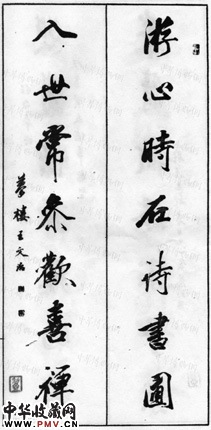 游心時在詩書圃
入世常參歡喜禪
夢樓王文治
中华收藏网
www.PMV.cn